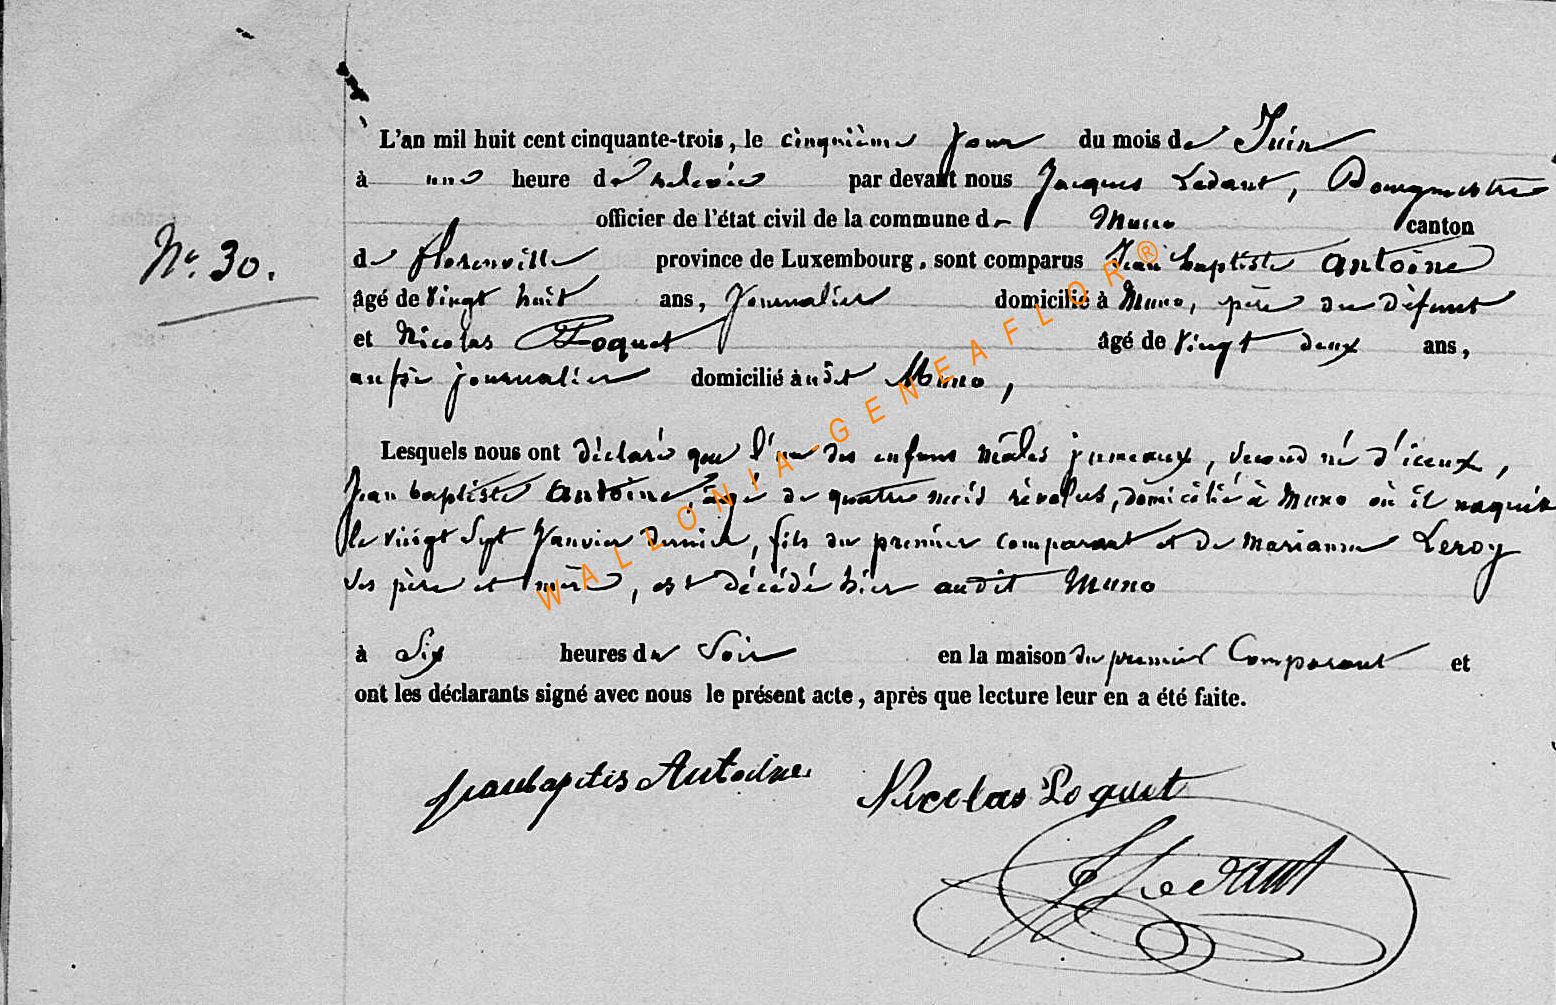 L'an mil huit cent cinquante-trois, le cinquième jour du mois de Juin
à une heure de relevée par devant nous Jacques Ledant, Bourgmestre
officier de l'état civil de la commune de Muno canton
N.° 30.
de florenville province de Luxembourg, sont comparus Jean baptiste Antoine
âgé de vingt huit ans, Journalier domicilié à Muno, père du défunt
et Nicolas Poquet âgé de vingt deux ans,
aussi journalier domicilié audit Muno,
Lesquels nous ont déclaré que l'un des enfans mâles jumeaux, second né d'iceux,
Jean baptiste Antoine, âgé de quatre mois révolus, domicilié à Muno où il naquit
le vingt sept Janvier dernier, fils du premier comparant et de marianne Leroy
ses père et mère, est décédé hier audit Muno
à Six heures du Soir en la maison du premier Comparant et
ont les déclarants signé avec nous le présent acte, après que lecture leur en a été faite.
jeanbaptis Antoine Nicolas Poquet
J Ledant
WALLONIA-GENEAFLOR®